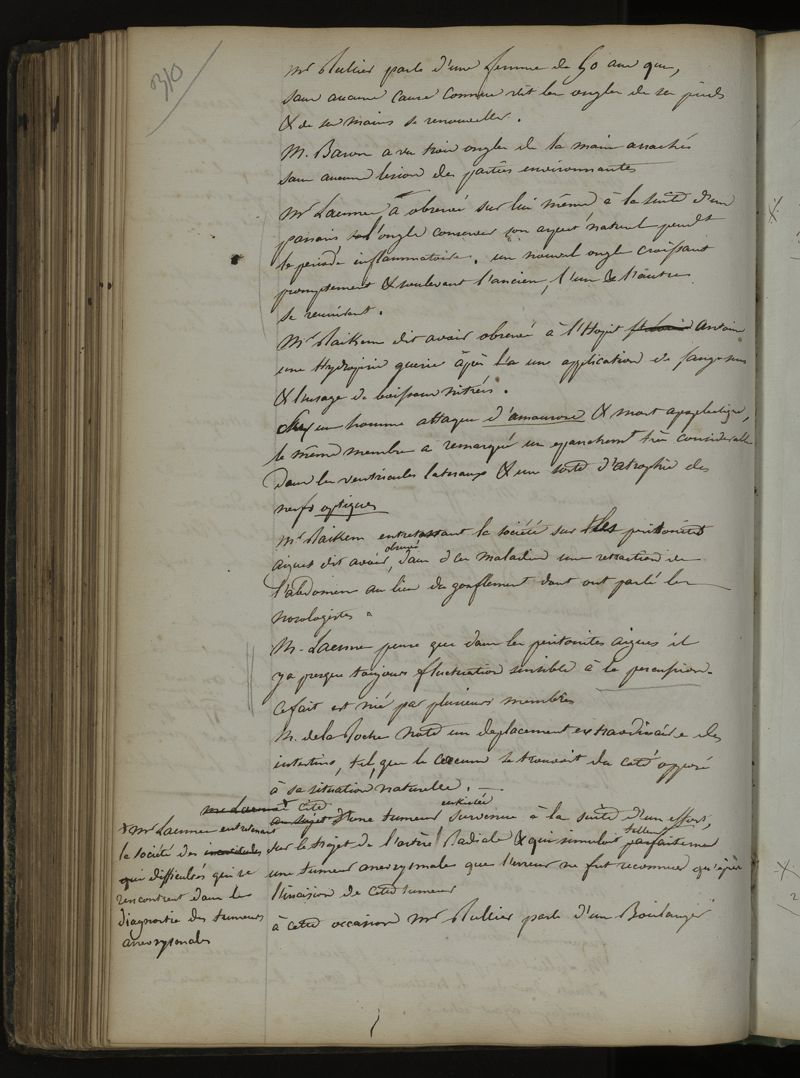 310
Mr Rullier parle d'une femme de 50 ans qui,
sans aucune cause connue vit les ongles de ses pieds
& de ses mains se renouveller.
M. Baron a vu trois ongles de la main arrachés
sans aucune lésion des parties environnantes
Mr Laennec a observé sur lui même à la suite d'un
panaris l'ongle conserver son aspect naturel pendt
la période inflammatoire, un nouvel ongle croissant
promptement & soulevant l'ancien, l'un & l'autre
se réunirent.
Mr Raikem dit avoir observé à l'Hopit Antoine
une Hydropisie guerie après une application de sangsues
& l'usage de boissons nitrées.
Chez un homme attaqué d'amaurose & mort apoplectique,
le même membre a remarqué un epanchemt très considerable
dans les ventricules lateraux & une sorte d'atrophie des
nerfs optiques
Mr Raikem entretenant la société sur les peritonites
aigues dit avoir observé dans ces maladies une retraction de
l'abdomen au lieu du gonflement dont ont parlé les
nosologistes
M. Laennec pense que dans les peritonites aigues il
y a presque toujours fluctuation sensible à la percussion.
Ce fait est nié par plusieurs membres
M. de la Roche note un deplacement extraordinaire des
intestins, tel que le coecum se trouvoit du coté opposé
à sa situation naturelle.
mr Laennec cite
au sujet d'une tumeur enkistée survenue à la suite d'un effort,
sur le trajet de l'artère Radiale & qui simuloit tellemt parfaitement
une tumeur anevrysmale que l'erreur ne fut reconnue qu'après
l'incision de cette tumeur
à cette occasion Mr Rullier parle d'un Boulanger
+ Mr Laennec entretenant
la société des
qui difficultés qui se
rencontrent dans le
diagnostic des tumeurs
anevrysmales